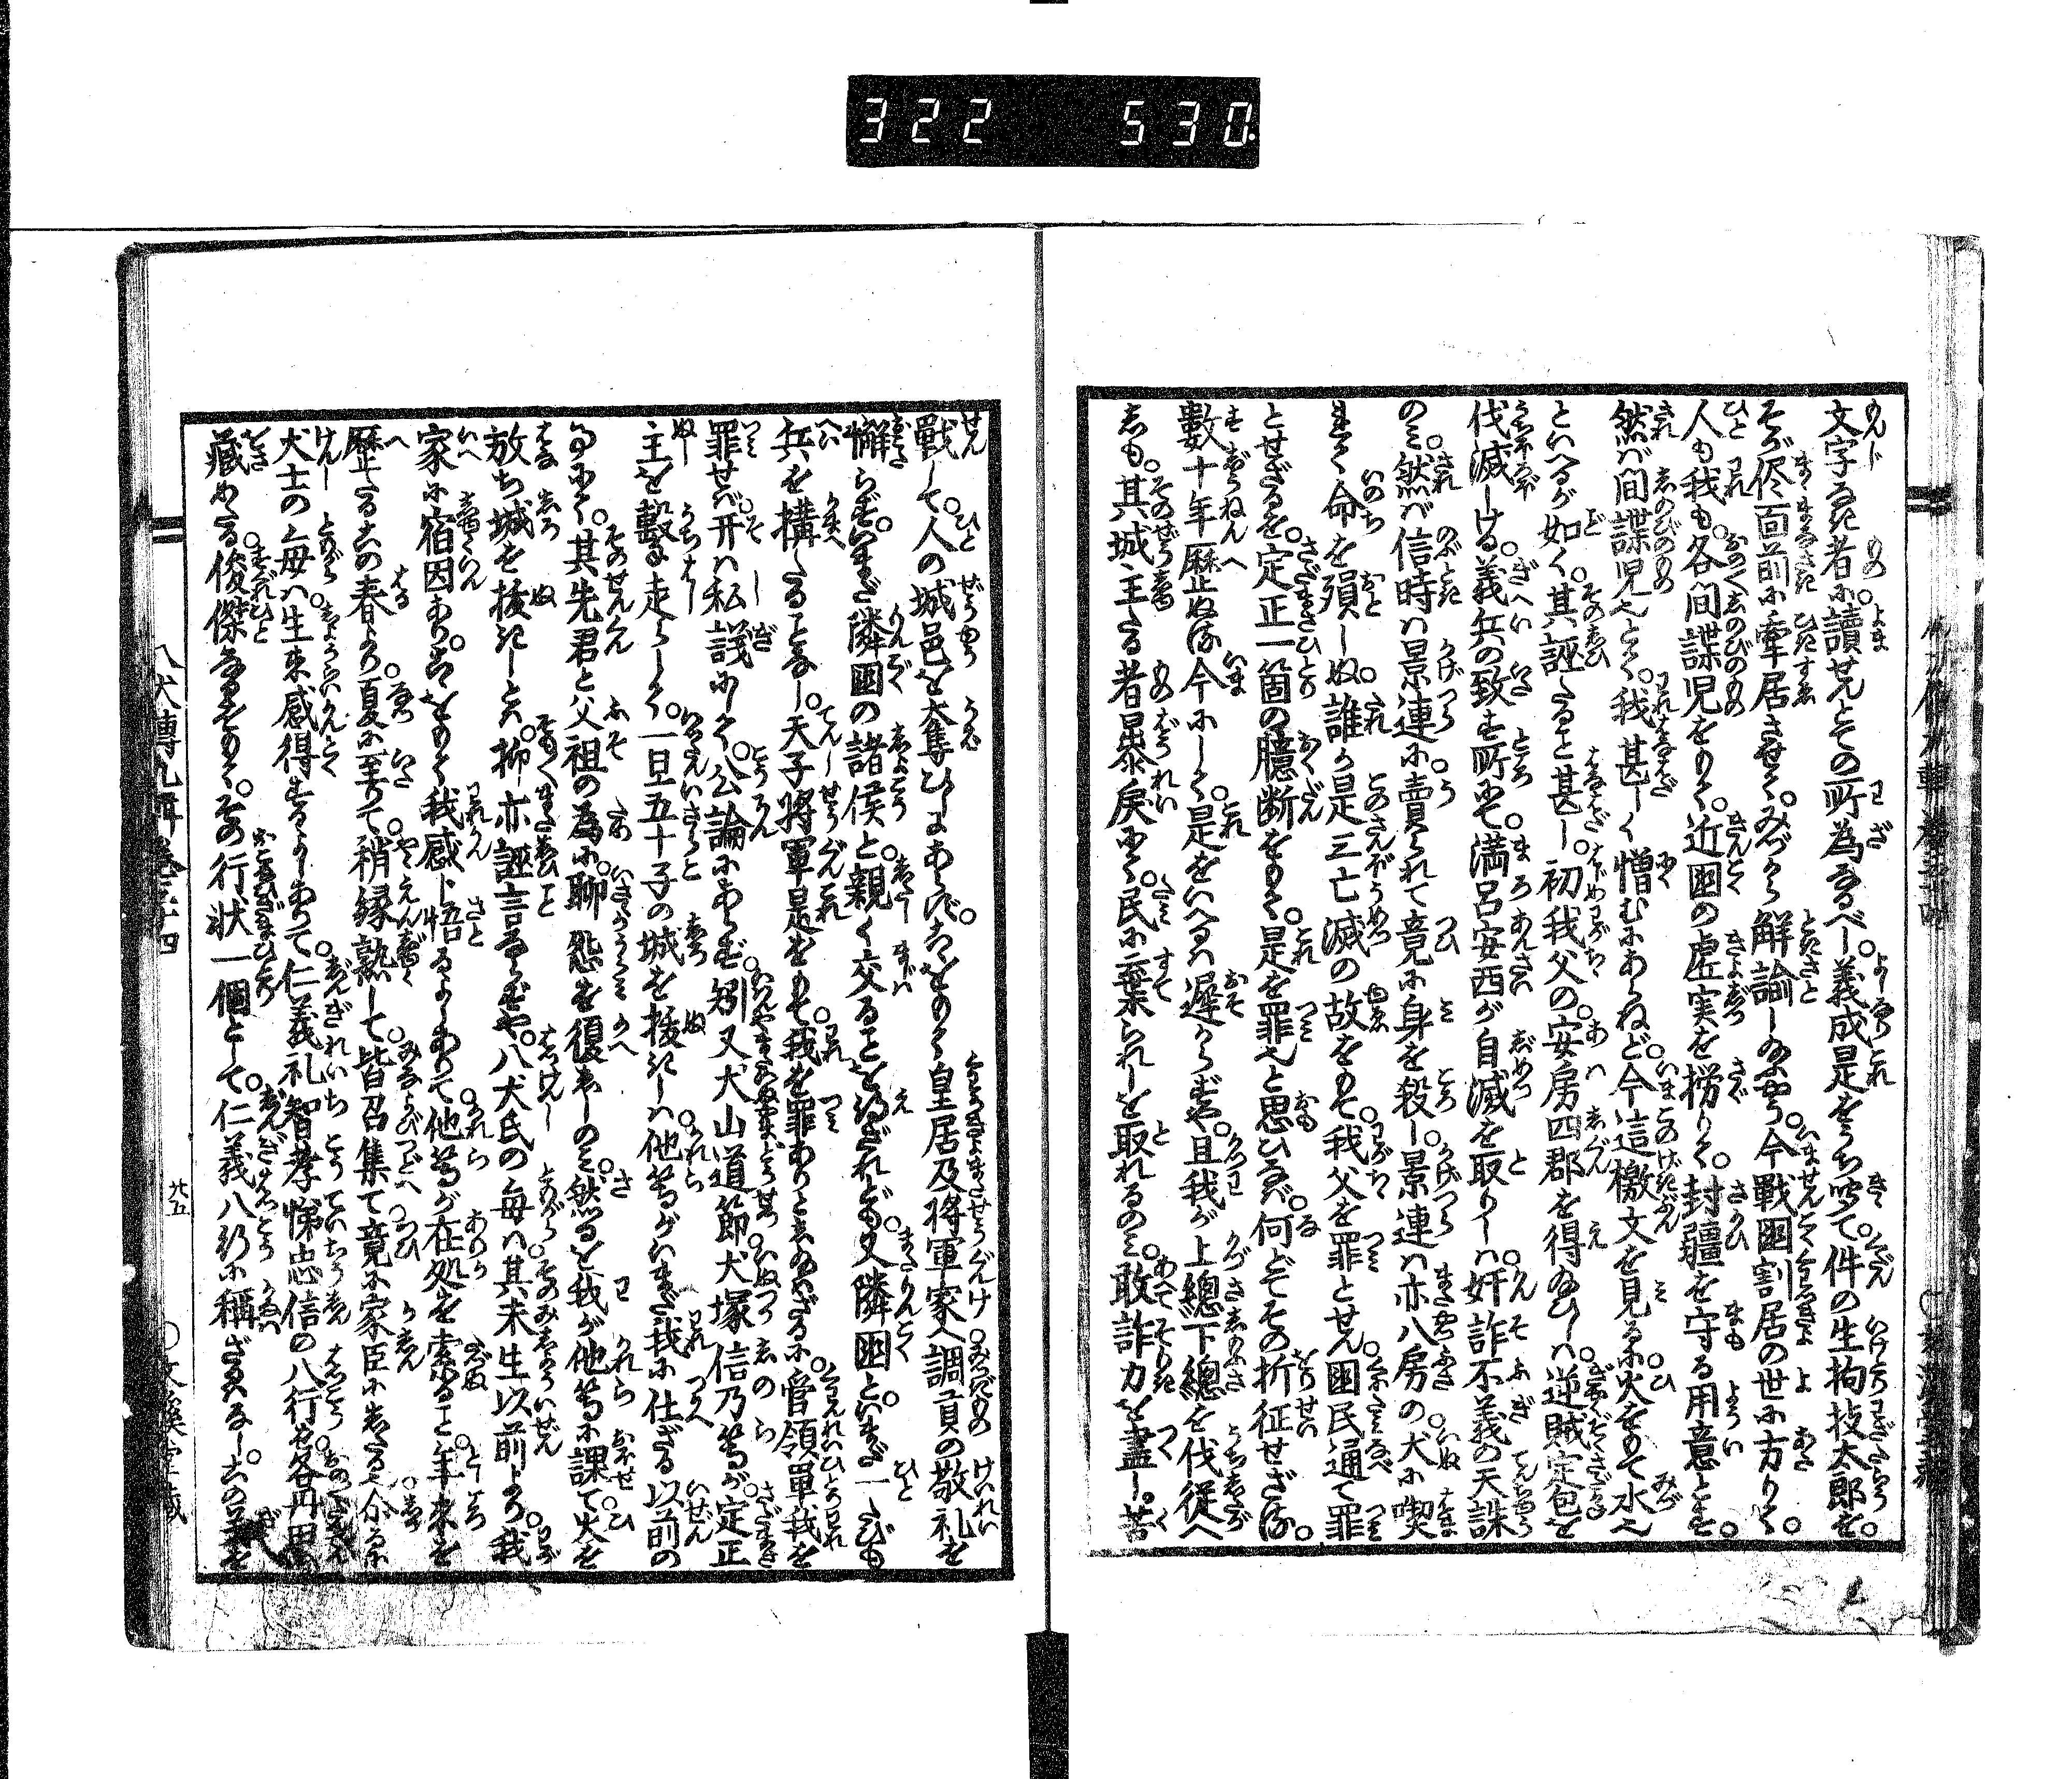 322 530
文字なき者に讀せんとての所為なるべし。義成是をうち咲て。件の生拘技太郎を。
そが侭面前に牽居させて。みづから解諭し給ふやう。今戰國割居の世に方りて。
人も我も。各間諜児をもて。近國の虚実を撈りて。封疆を守る用意とす。
然ば間諜児也とて。我甚しく憎むにあらねど。今這檄文を見るに火をもて水也
といへるが如く。其誣たること甚し。初我父の。安房四郡を得給ひしハ。逆賊定包を
伐滅しける。義兵の致す所にて。満呂安西が自滅を取りしハ。奸詐不義の天誅
のミ。然ば信時ハ景連に賣られて竟に身を殺し。景連ハ亦八房の犬に喫
れて命を殞しぬ。誰か是三亡滅の故をもて。我父を罪とせん。國民通て罪
とせざるを。定正一箇の臆断をもて。是を罪也と思ひなば。何どてその折征せざる。
數十年歴ぬる今にして。是をいへるハ遲からずや。且我が上總下總を伐従へ
しも。其城主たる者暴戻にて。民に棄られしを取れるのミ。敢詐力を盡し。苦
戰して。人の城邑を奪ひしにあらず。こをもて皇居及将軍家へ調貢の敬礼を
懈らず。いまだ隣國の諸侯と。親く交ることを得ざれども。又隣國と。いまだ一たびも
兵を構しことなし。天子將軍是をもて。我を罪ありとし給ハざるに。管領單我を
罪せバ。开ハ私議にして。公論にあらず。矧又犬山道節犬塚信乃等が。定正
主を擊走らして。一旦五十子の城を抜きしハ。他等がいまだ我に仕ざる以前の
事にて。其先君と父祖の為に。聊怨を復せしのミ。然るを我が他等に課て火を
放ち城を抜きしとハ。抑亦誣言ならずや。八犬氏の毎ハ。其未生以前より。我
家に宿因あり。こをもて我感悟るよしありて。他等が在処を索ること。年来を
歴たるこの春より。夏に至りて。稍縁熟して。皆召集て竟に家臣にしたる也。かゝるに
犬士の毎ハ。生来感得するよしありて。仁義礼智孝悌忠信の八行を。各丹田に
藏めたる俊傑なるをもて。その行状一個として。仁義八行に稱ざるハなし。この美を
八犬傳九輯巻三十四
廿五